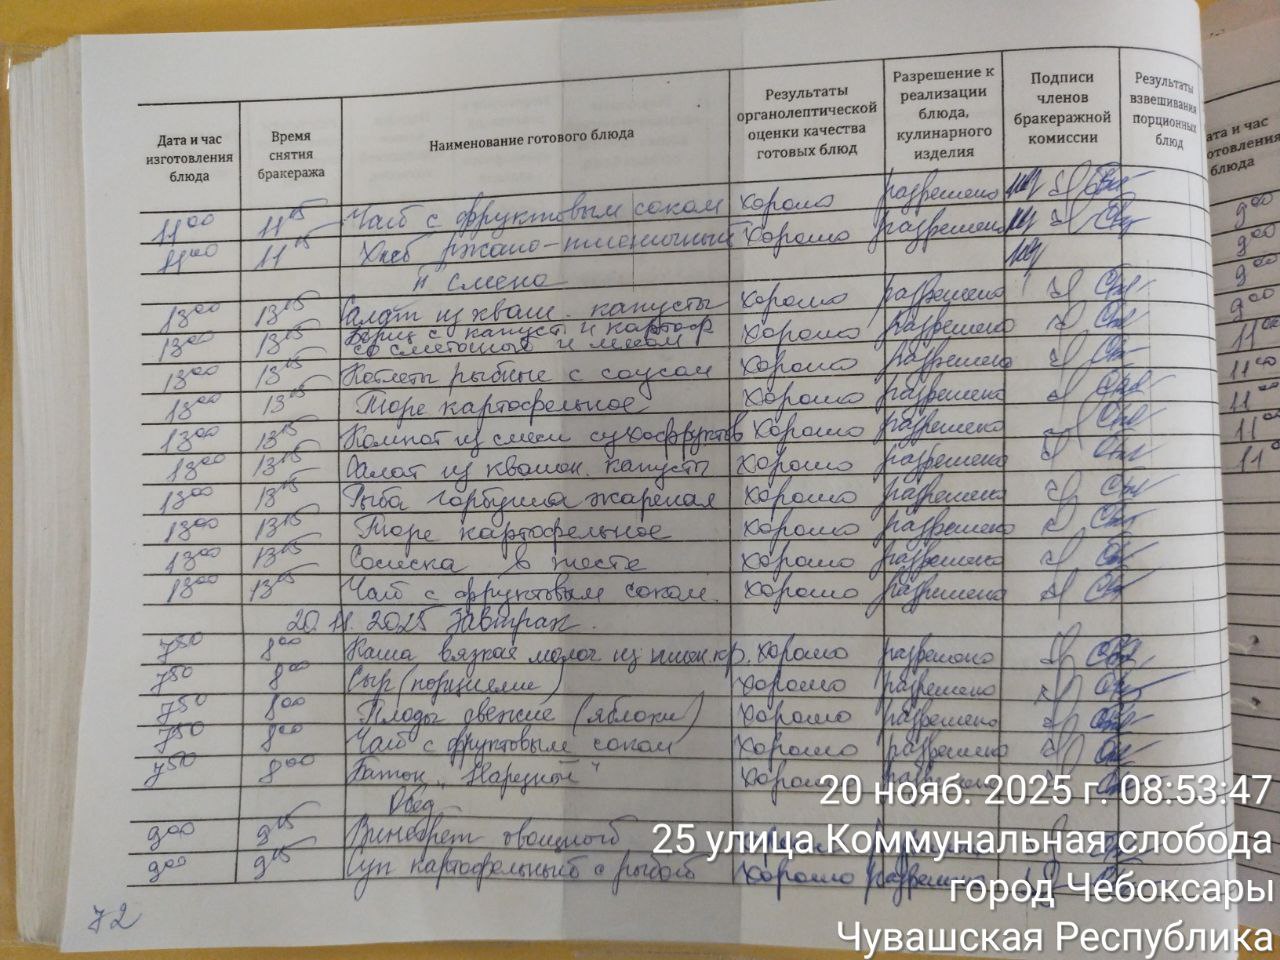 Дата и час изготовления блюда | Время снятия бракеража | Наименование готового блюда | Результаты органолептической оценки качества готовых блюд | Разрешение к реализации блюда, кулинарного изделия | Подписи членов бракеражной комиссии | Результаты взвешивания порционных блюд
11 00 | 11 15 | Чай с фруктовым соком | хорошо | разрешено
11 00 | 11 15 | Хлеб ржано-пшеничный | хорошо | разрешено
II смена
13 00 | 13 15 | Салат из кваш. капусты | хорошо | разрешено
13 00 | 13 15 | Борщ с капуст и картоф со сметаной и мясом | хорошо | разрешено
13 00 | 13 15 | Котлеты рыбные с соусом | хорошо | разрешено
13 00 | 13 15 | Пюре картофельное | хорошо | разрешено
13 00 | 13 15 | Компот из смеси сухофруктов | хорошо | разрешено
13 00 | 13 15 | Салат из квашен. капусты | хорошо | разрешено
13 00 | 13 15 | Рыба горбуша жареная | хорошо | разрешено
13 00 | 13 15 | Пюре картофельное | хорошо | разрешено
13 00 | 13 15 | Сосиска в тесте | хорошо | разрешено
13 00 | 13 15 | Чай с фруктовым соком. | хорошо | разрешено
20.11.2025 Завтрак.
7 50 | 8 00 | Каша вязкая молоч из пшен.кр. | хорошо | разрешено
7 50 | 8 00 | Сыр (порциями) | хорошо | разрешено
7 50 | 8 00 | Плоды свежие (яблоки) | хорошо | разрешено
7 50 | 8 00 | Чай с фруктовым соком | хорошо | разрешено
7 50 | 8 00 | Батон "Нарезной" | хорошо | разрешено
Обед
9 00 | 9 15 | Винегрет овощной
9 00 | 9 15 | Суп картофельный с рыбой | хорошо | разрешено
72
ата и час
отовления
блюда
9 00
9 00
9 00
9 00
11 00
11 00
11 00
11 00
11 00
20 нояб. 2025 г. 08:53:47
25 улица Коммунальная слобода
город Чебоксары
Чувашская Республика